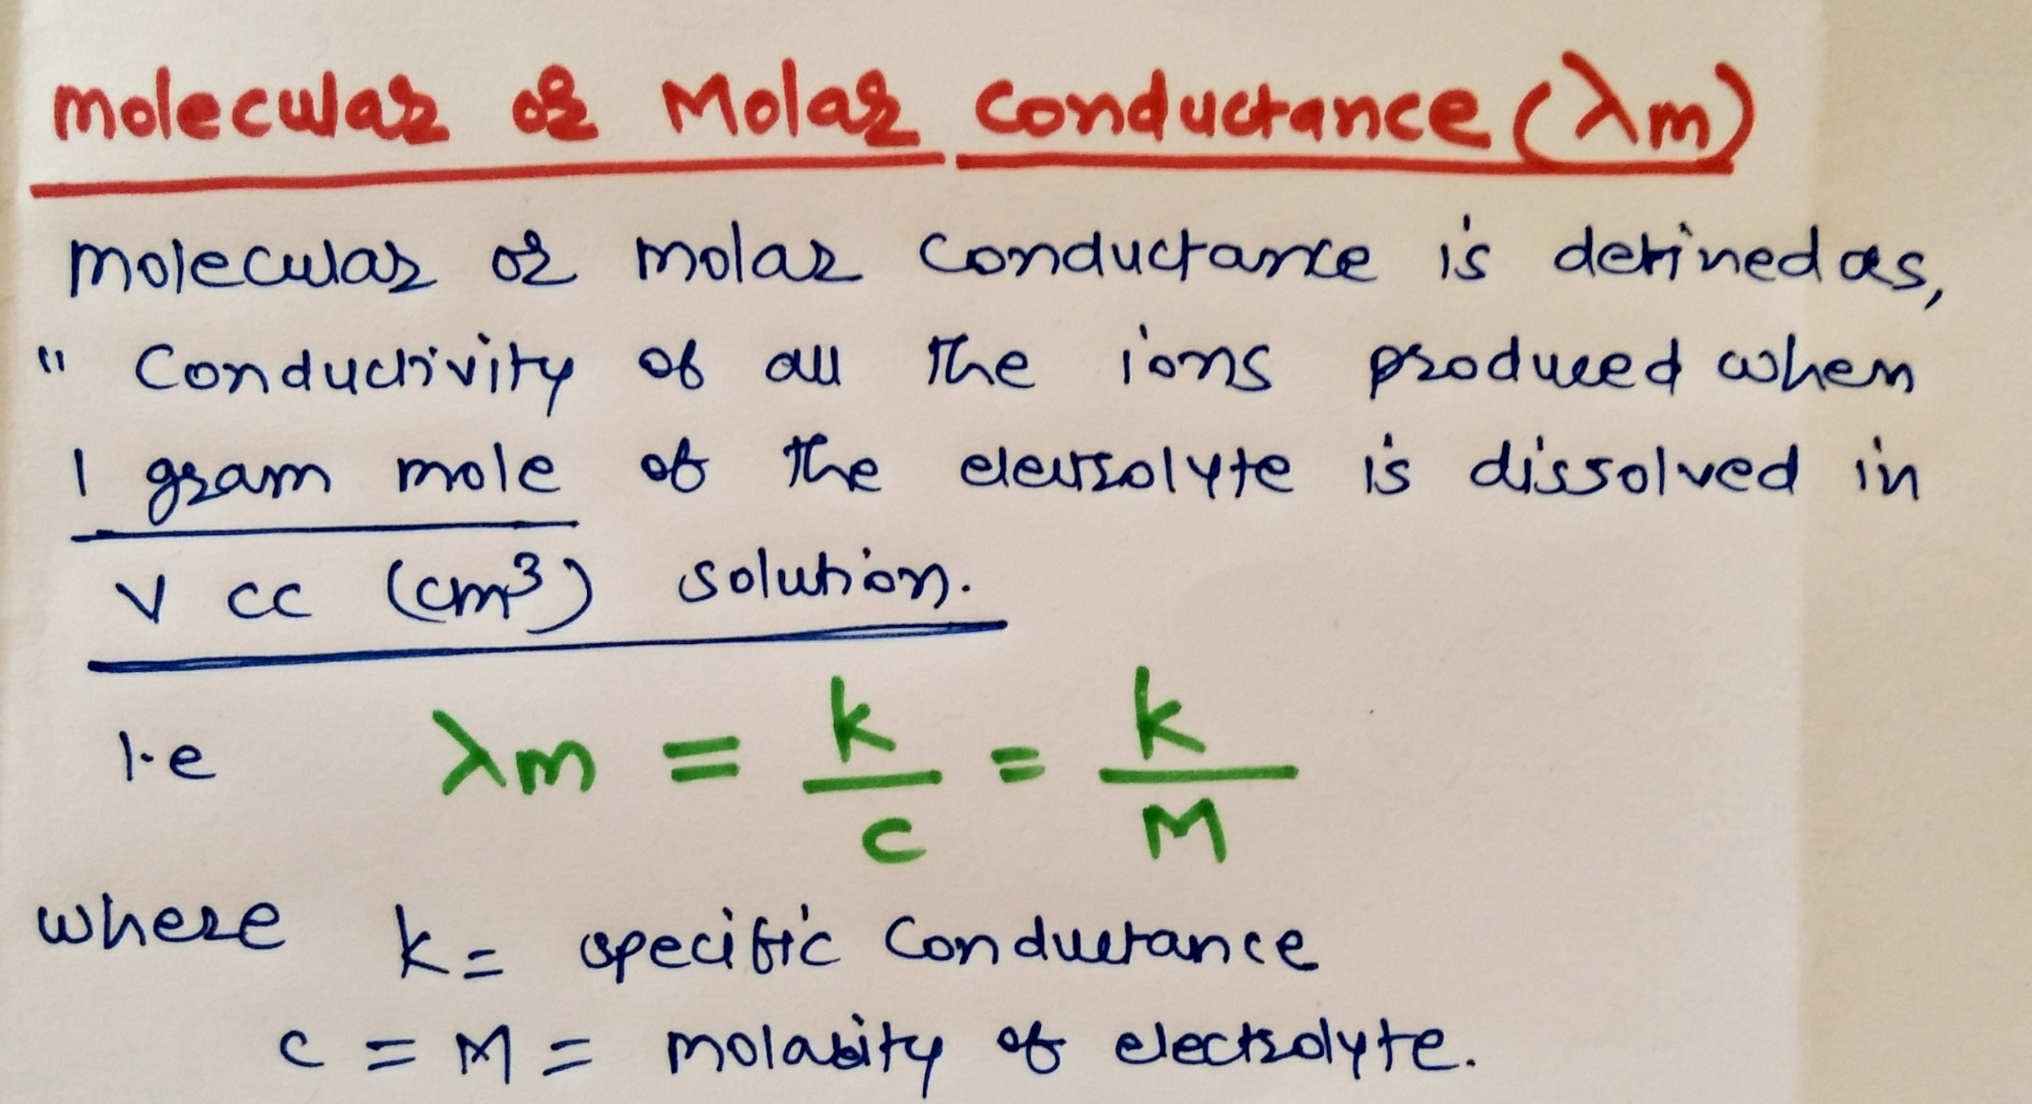 Molecular or Molar Conductance (λm)
Molecular or molar conductance is defined as,
" Conductivity of all the ions produced when
1 gram mole of the electrolyte is dissolved in
V cc (cm³) solution.
I.e λm = k/c = k/M
where k = specific Conductance
c = M = molarity of electrolyte.